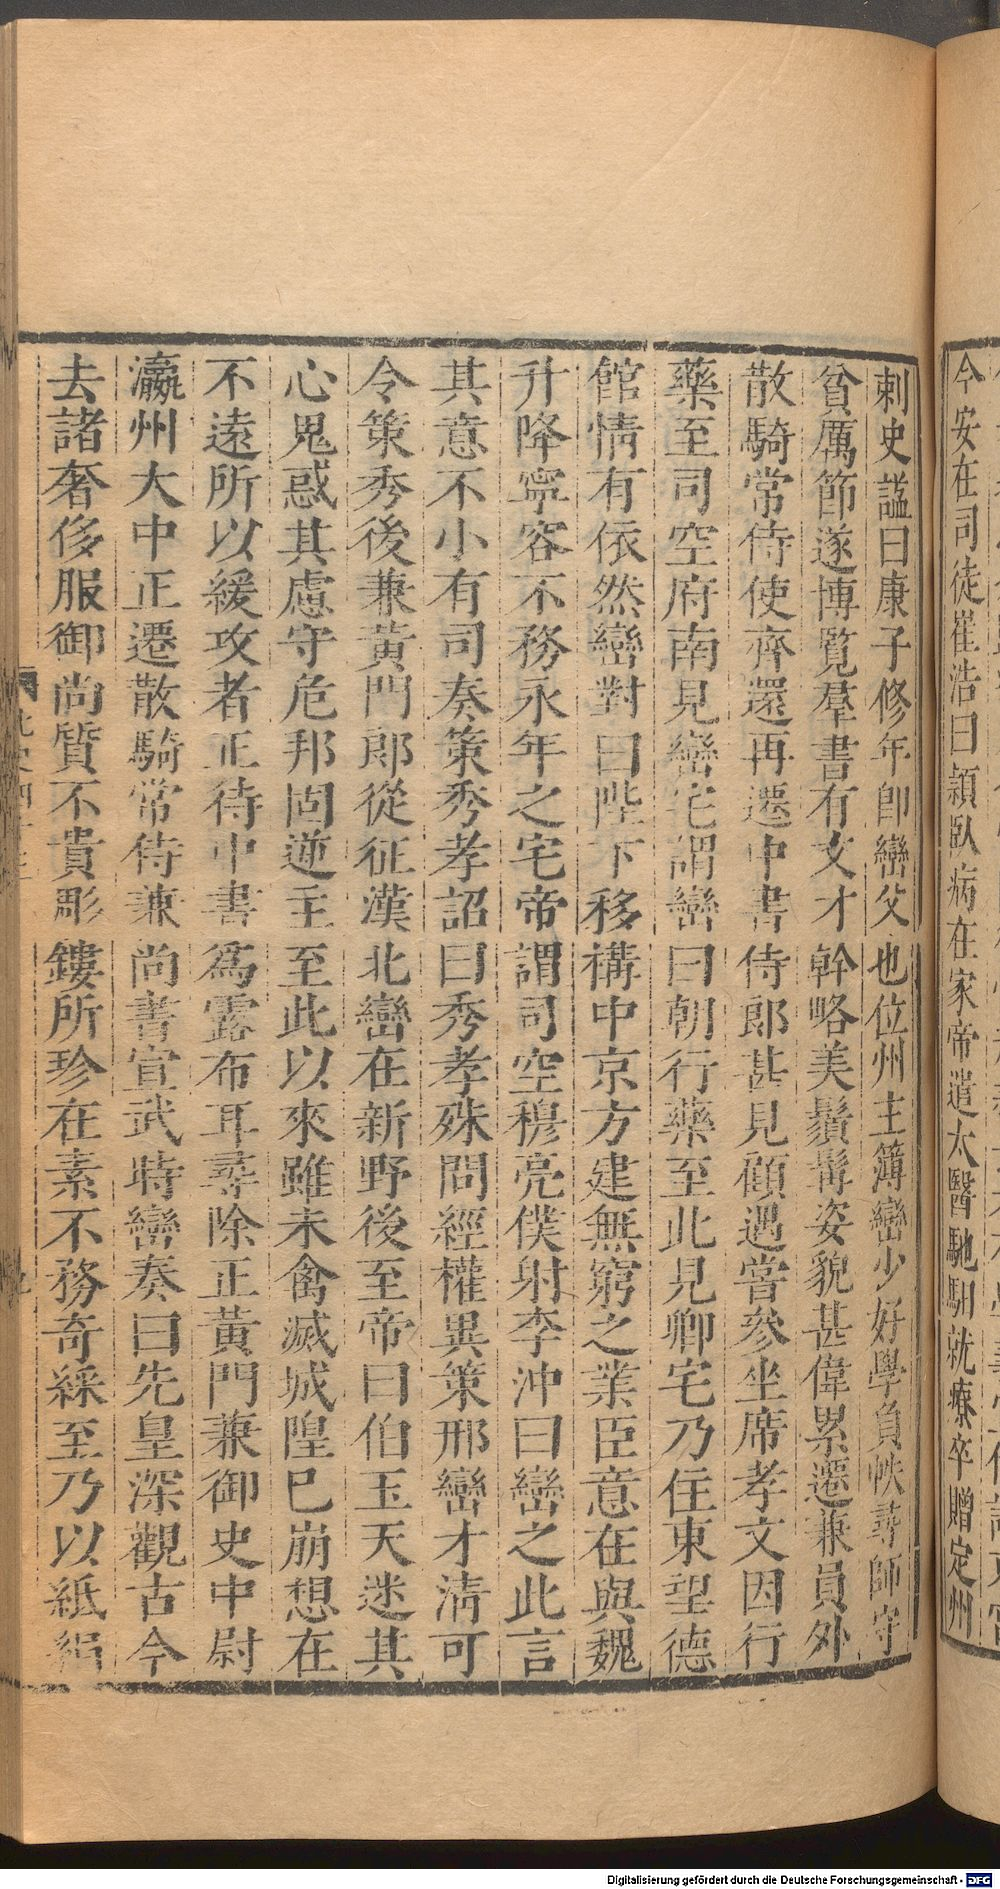 今安在司徒崔浩曰頴臥病在家帝遣太醫馳馹就療卒贈定州
刺史諡曰康子修年卽巒父也位州主簿巒少好學負帙尋師守
貧厲節遂博覽羣書有文才幹略美鬚髯姿貌甚偉累遷兼員外
散騎常侍使齊還再遷中書侍郎甚見顧遇嘗參坐席孝文因行
藥至司空府南見巒宅謂巒曰朝行藥至此見卿宅乃住東望德
館情有依然巒對曰陛下移構中京方建無窮之業臣意在與魏
升降寧容不務永年之宅帝謂司空穆亮僕射李沖曰巒之此言
其意不小有司奏策秀孝詔曰秀孝殊問經權異策邢巒才淸可
令策秀後兼黃門郎從征漢北巒在新野後至帝曰伯玉天迷其
心鬼惑其慮守危邦固逆主至此以來雖未禽滅城隍已崩想在
不遠所以緩攻者正待中書爲露布耳尋除正黃門兼御史中尉
瀛州大中正遷散騎常侍兼尚書宣武時巒奏曰先皇深觀古今
去諸奢侈服御尚質不貴彫鏤所珍在素不務奇綵至乃以紙絹
Digitalisierung gefördert durch die Deutsche Forschungsgemeinschaft - DFG